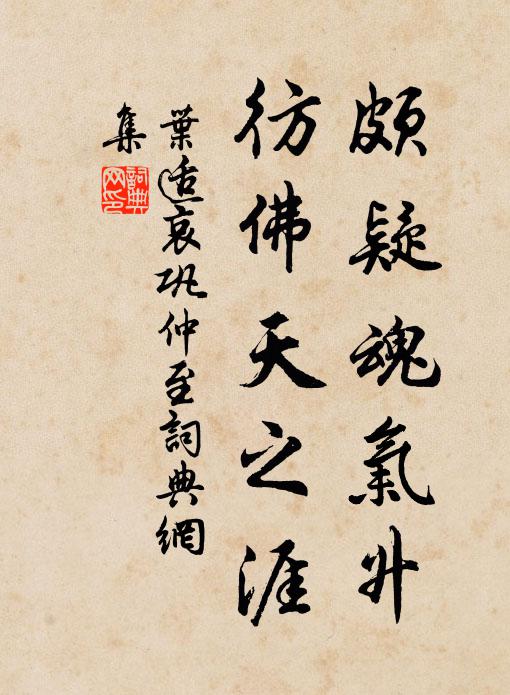 頗疑魂氣升
彷佛天之涯
葉适哀巩仲至詞典網
集
詞典
网印